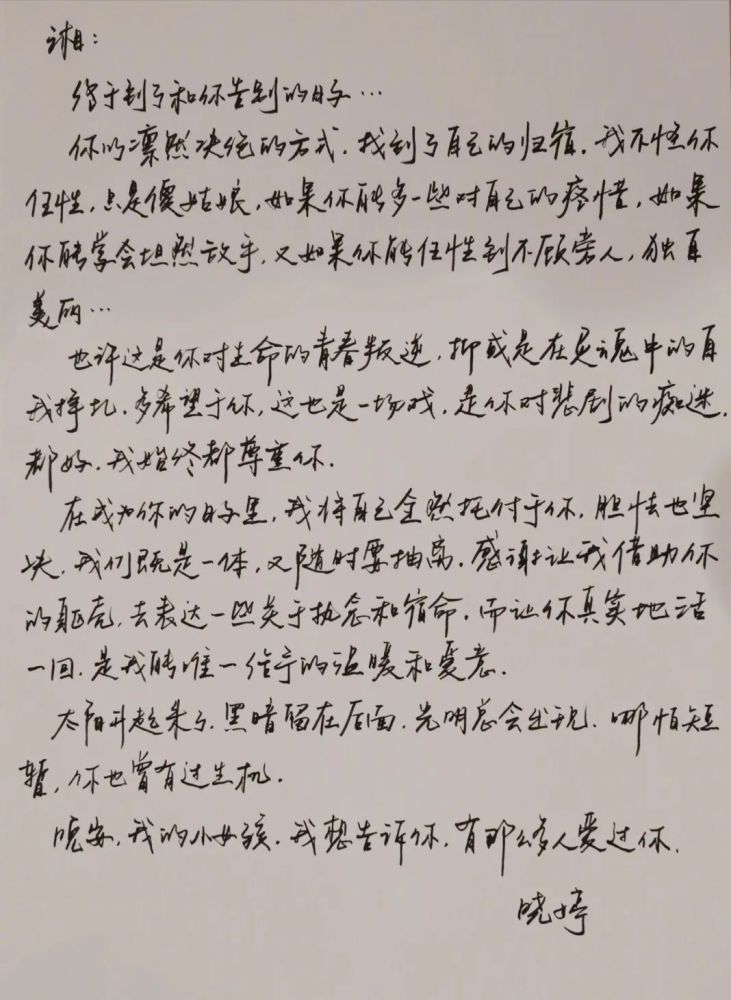 湘：
终于到了和你告别的日子…
你以凛然决绝的方式，找到了自己的归宿，我不怪你
任性，只是傻姑娘，如果你能多一些对自己的疼惜，如果
你能学会坦然放手，又如果你能任性到不顾旁人，独自
美丽…
也许这是你对生命的青春叛逆，抑或是在灵魂中的自
我挣扎，多希望于你，这也是一场戏，是你对悲剧的痴迷，
都好，我始终都尊重你．
在成为你的日子里，我将自己全然托付于你，胆怯也坚
决，我们既是一体，又随时要抽离．感谢让我借助你
的躯壳，去表达一些关于执念和宿命，而让你真实地活
一回，是我能唯一给予的温暖和爱意．
太阳升起来了，黑暗留在后面，光明总会出现，哪怕短
暂，你也曾有过生机．
晚安，我的小女孩，我想告诉你，有那么多人爱过你．
晓婷